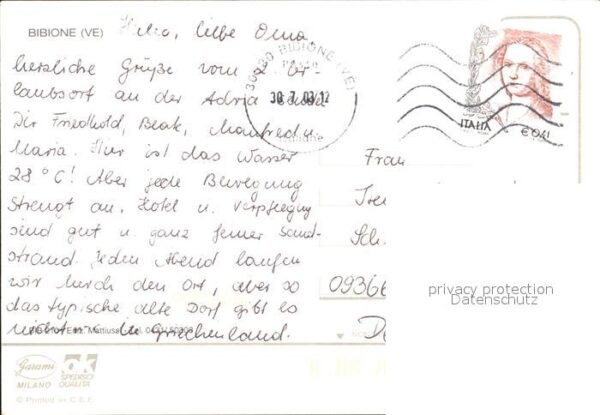 BIBIONE (VE)
Hallo, liebe Oma,
herzliche Grüße vom 2. Ur-
laubsort an der Adria sendet
Dir Friedhold, Beate, Manfred u.
Maria. Hier ist das Wasser
28°C! Aber jede Bewegung
strengt an. Hotel u. Verpflegung
sind gut u. ganz feiner Sand-
strand. Jeden Abend laufen
wir durch den Ort, aber so
das typische alte Dorf gibt es
in Griechenland.
30020 BIBIONE (VE)
30.7.03 12
ITALIA
€ 0,41
Frau
09366
privacy protection
Datenschutz
Garami
MILANO
OK
SPEDISCI
QUALITÀ